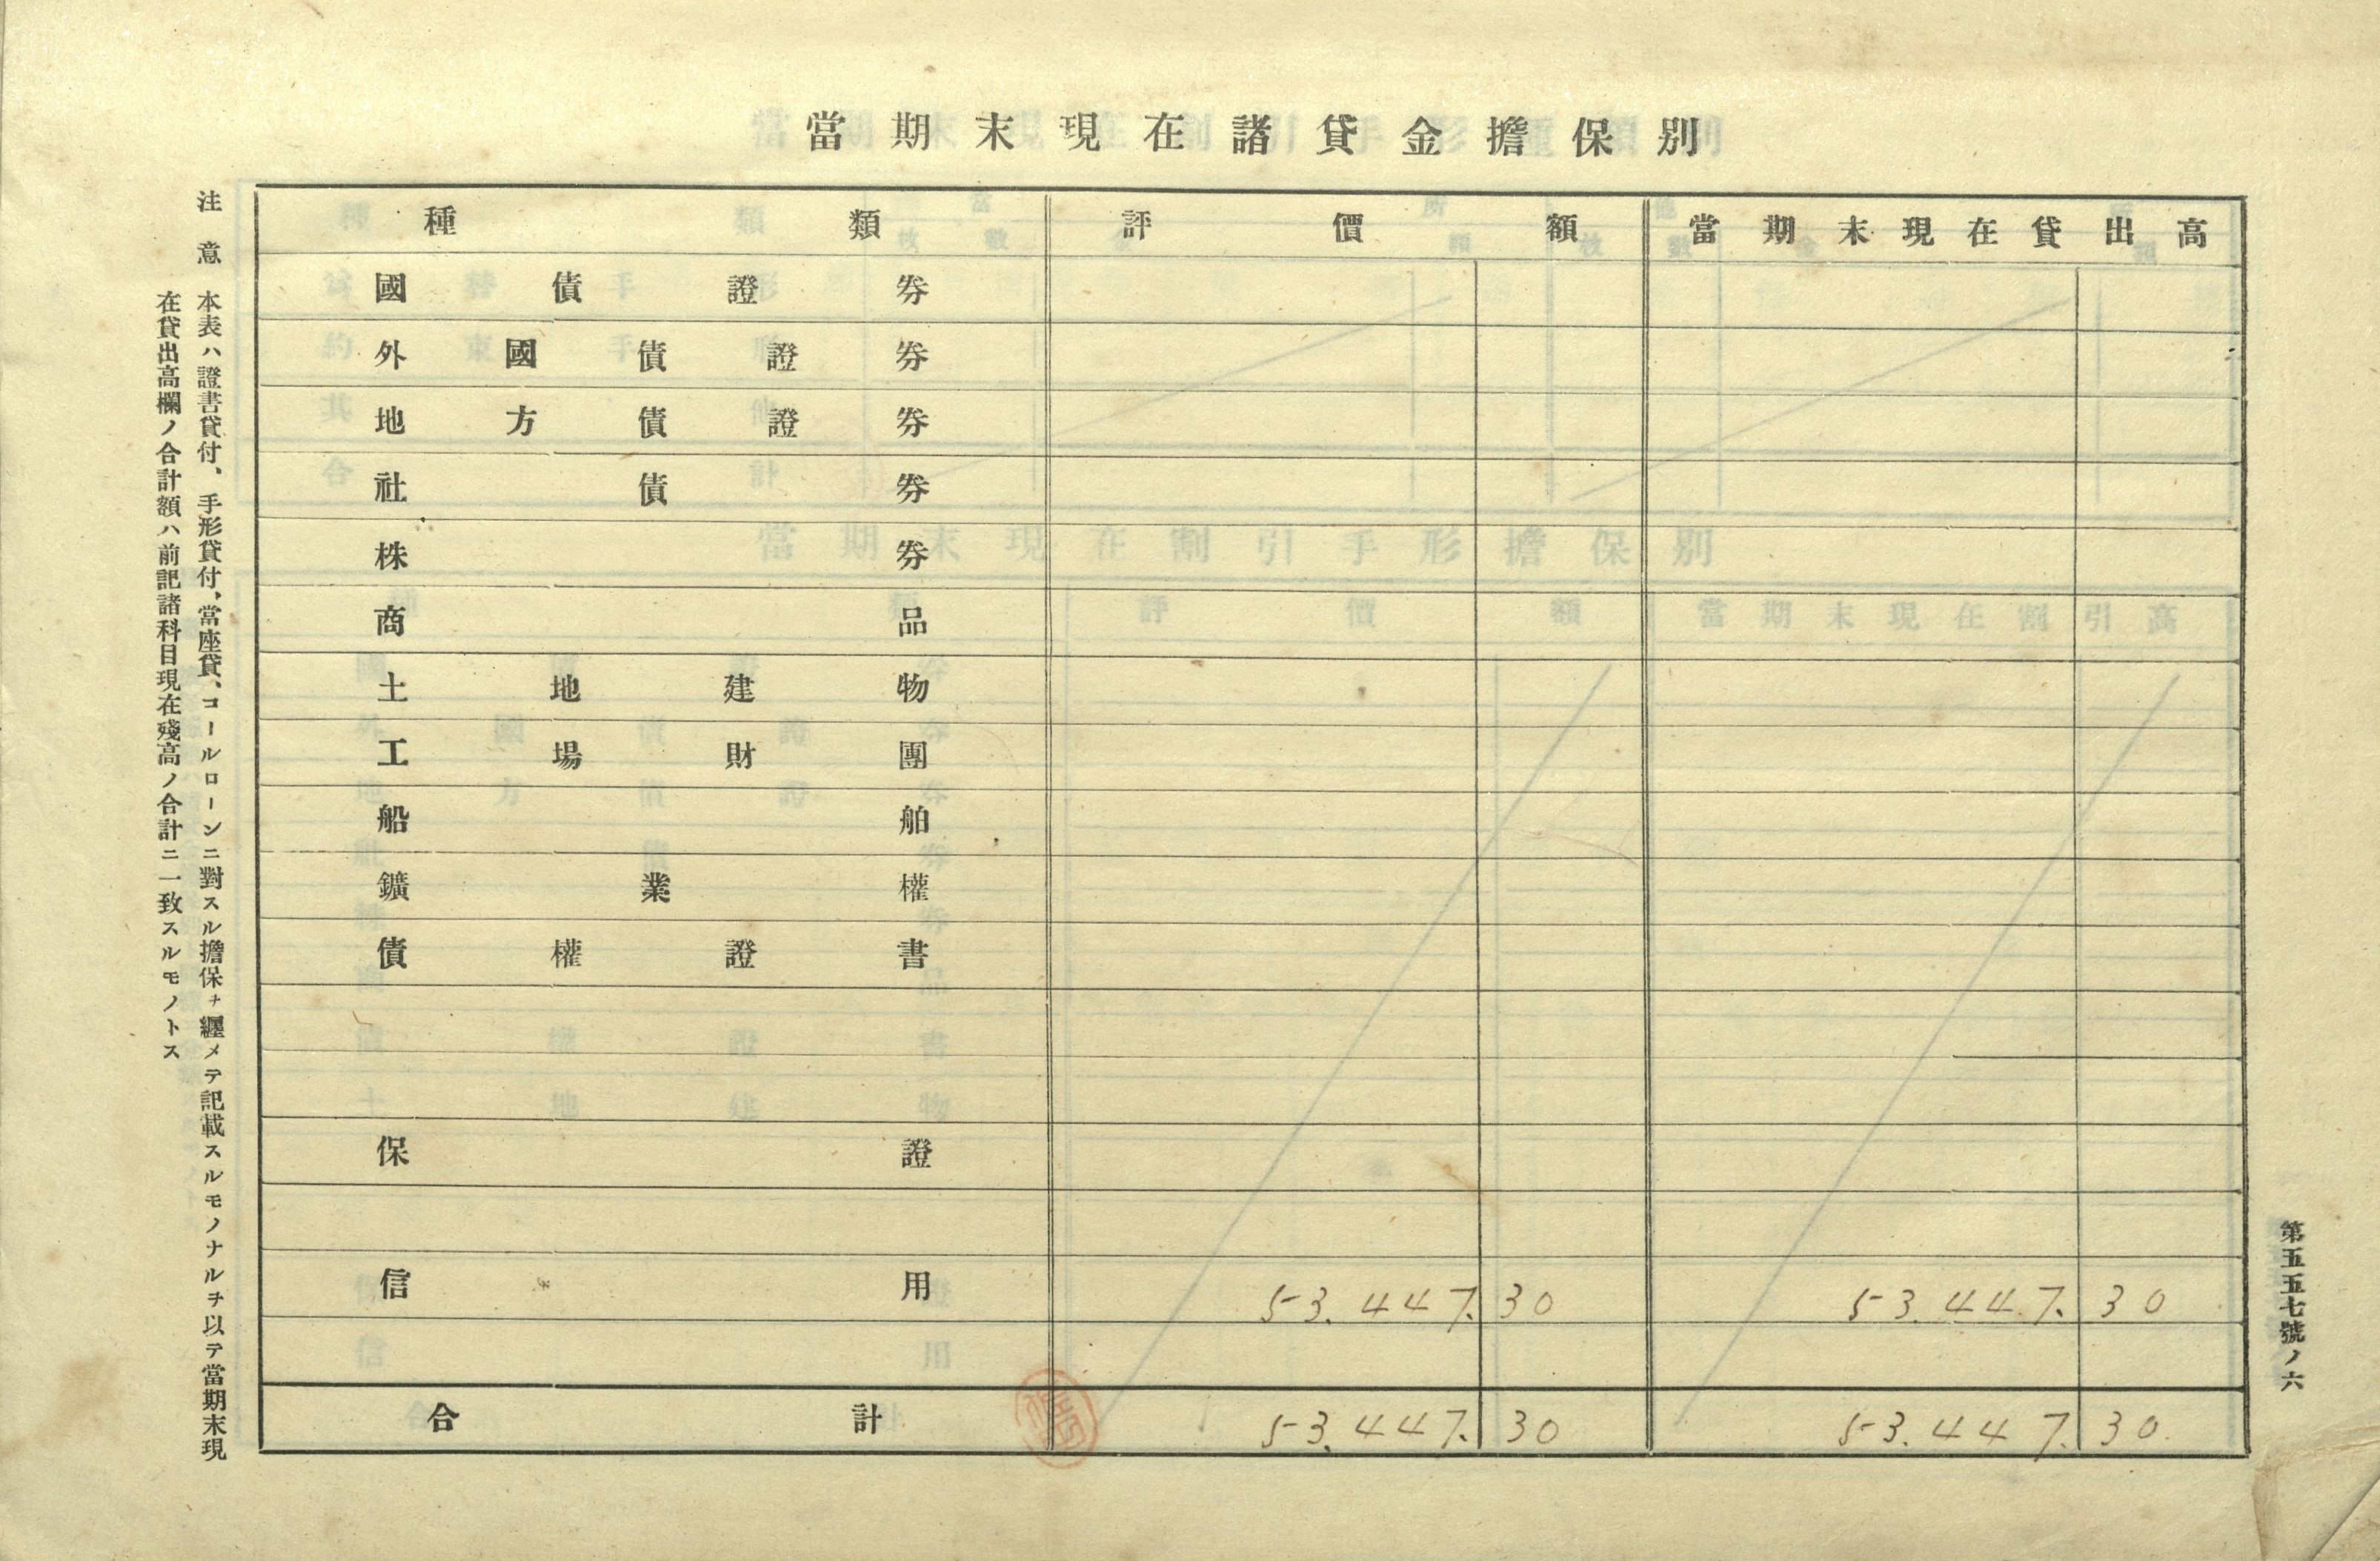 當期末現在諸貸金擔保別
種類 評價額 當期末現在貸出高
國債證券
外國債證券
地方債證券
社債券
株券
商品
土地建物
工場財團
船舶
鑛業權
債權證書
保證
信用 53.447.30 53.447.30
合計 53.447.30 53.447.30
注意 本表ハ證書貸付、手形貸付、當座貸、コールローンニ對スル擔保ヲ纒メテ記載スルモノナルヲ以テ當期末現
在貸出高欄ノ合計額ハ前記諸科目現在殘高ノ合計ニ一致スルモノトス
第五五七號ノ六